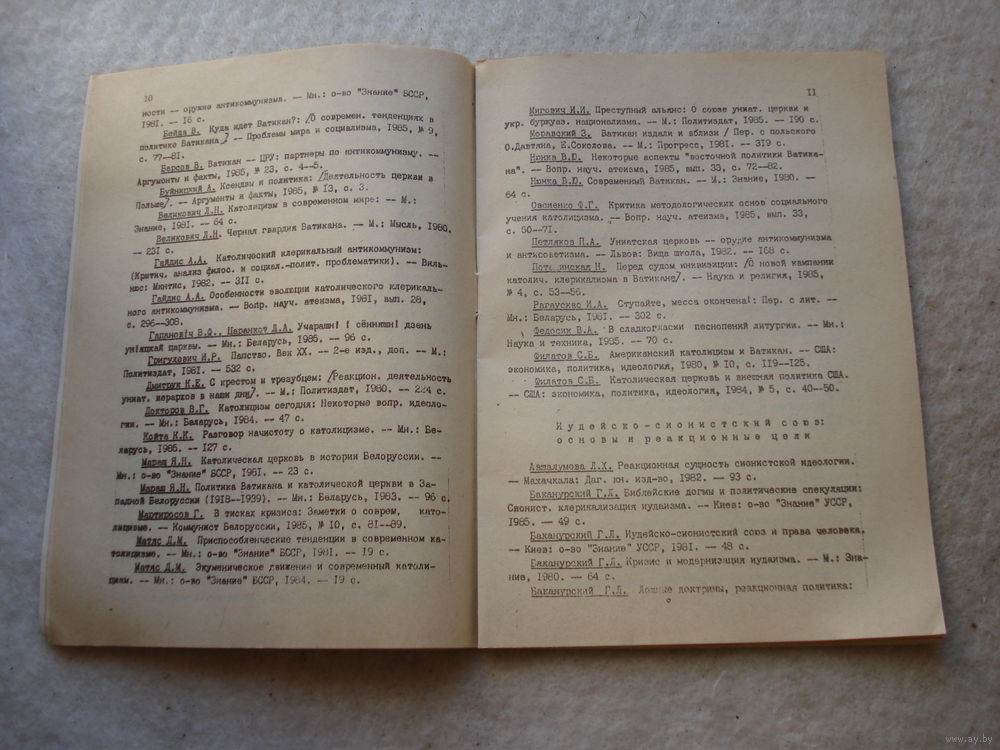 10
ности — оружие антикоммунизма. — Мн.: о-во "Знание" БССР,
1981. — 16 с.
Бейда В. Куда идет Ватикан?: /О современ. тенденциях в
политике Ватикана/ — Проблемы мира и социализма, 1985, № 9,
с. 77—81.
Берсов В. Ватикан — ЦРУ: партнеры по антикоммунизму. —
Аргументы и факты, 1985, № 23, с. 4—5.
Буйницкий А. Ксендзы и политика: /Деятельность церкви в
Польше/. — Аргументы и факты, 1985, № 13, с. 3.
Великович Л.Н. Католицизм в современном мире: — М.:
Знание, 1981. — 64 с.
Великович Л.Н. Черная гвардия Ватикана. — М.: Мысль, 1980,
— 231 с.
Гайдис А.А. Католический клерикальный антикоммунизм:
(Критич. анализ филос. и социал.-полит. проблематики). — Виль-
нюс: Минтис, 1982. — 311 с.
Гайдис А.А. Особенности эволюции католического клерикаль-
ного антикоммунизма. — Вопр. науч. атеизма, 1981, вып. 28,
с. 296—308.
Гапановіч В.Ф., Царанкот Л.А. Учарашні і сённяшні дзень
уніяцкай царквы. — Мн.: Беларусь, 1985. — 96 с.
Григулевич И.Р. Папство. Век XX. — 2-е изд., доп. — М.:
Политиздат, 1981. — 532 с.
Дмитрук К.Е. С крестом и трезубцем: /Реакцион. деятельность
униат. иерархов в наши дни/. — М.: Политиздат, 1980. — 224 с.
Докторов В.Г. Католицизм сегодня: Некоторые вопр. идеоло-
гии. — Мн.: Беларусь, 1984. — 47 с.
Койта К.К. Разговор начистоту о католицизме. — Мн.: Бе-
ларусь, 1985. — 127 с.
Мараш Я.Н. Католическая церковь в истории Белоруссии. —
Мн.: о-во "Знание" БССР, 1981. — 23 с.
Мараш Я.Н. Политика Ватикана и католической церкви в За-
падной Белоруссии (1918—1939). — Мн.: Беларусь, 1983. — 96 с.
Мартиросов Г. В тисках кризиса: Заметки о соврем, като-
лицизме. — Коммунист Белоруссии, 1985, № 10, с. 81—89.
Матяс Д.М. Приспособленческие тенденции в современном ка-
толицизме. — Мн.: о-во "Знание" БССР, 1981. — 19 с.
Матяс Д.М. Экуменическое движение и современный католи-
цизм. — Мн.: о-во "Знание" БССР, 1984. — 19 с.
11
Мигович И.И. Преступный альянс: О союзе униат. церкви и
укр. буржуаз. национализма. — М.: Политиздат, 1985. — 190 с.
Моравский З. Ватикан издали и вблизи / Пер. с польского
О.Давтяна, Е.Соколова. — М.: Прогресс, 1981. — 319 с.
Нюнка В.Ю. Некоторые аспекты "восточной политики Ватика-
на". — Вопр. науч. атеизма, 1985, вып. 33, с. 72—82.
Нюнка В.Ю. Современный Ватикан. — М.: Знание, 1980. —
64 с.
Овсиенко Ф.Г. Критика методологических основ социального
учения католицизма. — Вопр. науч. атеизма, 1985, вып. 33,
с. 50—71.
Петляков П.А. Униатская церковь — орудие антикоммунизма
и антисоветизма. — Львов: Вища школа, 1982. — 168 с.
Перед судом инквизиции: /О новой кампании
католич. клерикализма в Ватикане/. — Наука и религия, 1985,
№ 4, с. 53—56.
Рагаускас И.А. Ступайте, месса окончена!: Пер. с лит. —
Мн.: Беларусь, 1981. — 302 с.
Федосик В.А. В сладкогласии песнопений литургии. — Мн.:
Наука и техника, 1985. — 70 с.
Филатов С.Б. Американский католицизм и Ватикан. — США:
экономика, политика, идеология, 1980, № 10, с. 119—125.
Филатов С.Б. Католическая церковь и внешняя политика США.
— США: экономика, политика, идеология, 1984, № 5, с. 40—50.
Иудейско-сионистский союз:
основы и реакционные цели
Авшалумова Л.Х. Реакционная сущность сионистской идеологии.
— Махачкала: Даг. кн. изд-во, 1982. — 93 с.
Бакanурский Г.Л. Библейские догмы и политические спекуляции:
Сионист. клерикализация иудаизма. — Киев: о-во "Знание" УССР,
1985. — 49 с.
Баканурский Г.Л. Иудейско-сионистский союз и права человека.
— Киев: о-во "Знание" УССР, 1981. — 48 с.
Баканурский Г.Л. Кризис и модернизация иудаизма. — М.: Зна-
ние, 1980. — 64 с.
Баканурский Г.Л. Ложные доктрины, реакционная политика:
www.ay.by